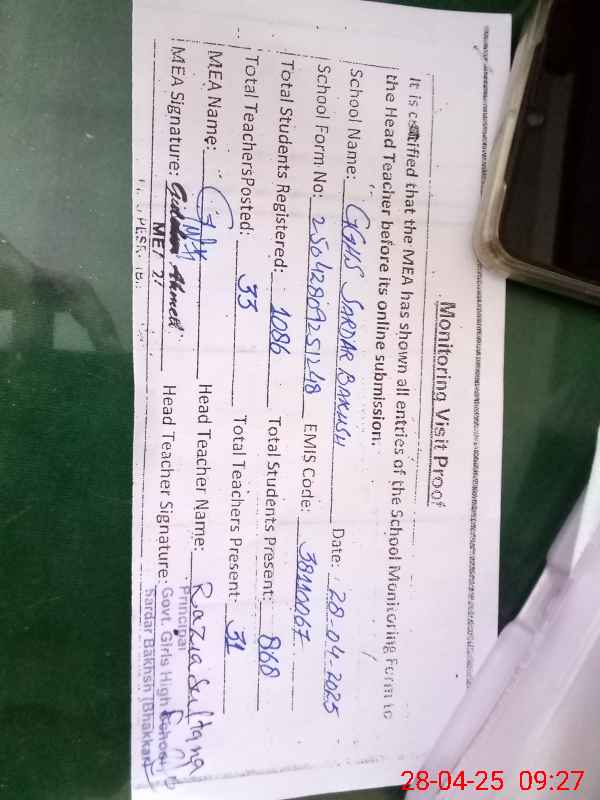 Monitoring Visit Proof
It is certified that the MEA has shown all entries of the School Monitoring Form to
the Head Teacher before its online submission.
School Name: GGHS SARDAR BAKHSH Date: 28-04-2025
School Form No: EMIS Code: 38110067
Total Students Registered: 1086 Total Students Present: 868
Total TeachersPosted: 33 Total Teachers Present: 31
MEA Name: Head Teacher Name: Razia Sultana
MEA Signature: Ahmed Head Teacher Signature:
Principal
Govt. Girls High School
Sardar Bakhsh (Bhakkar)
28-04-25 09:27